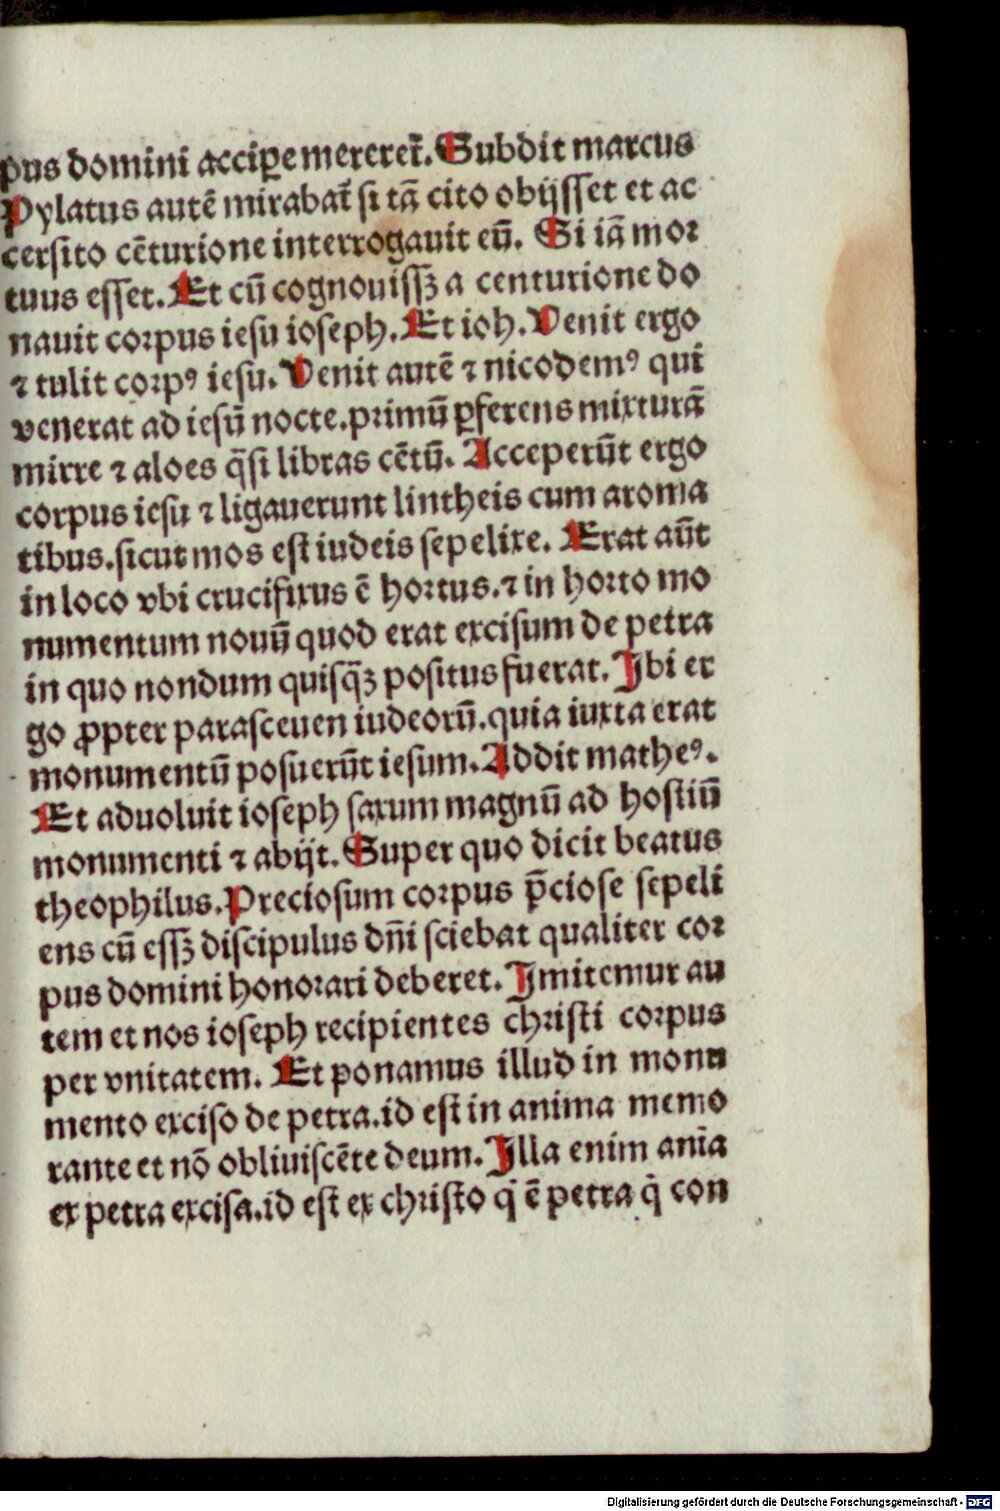 pus domini accipe mereret̄. Subdit marcus
Pylatus autē mirabat̄ si tā cito obijsset et ac
cersito cēturione interrogauit eū. Si iā mor
tuus esset. Et cū cognouissꝫ a centurione do
nauit corpus iesu ioseph. Et ioh. Venit ergo
⁊ tulit corpꝰ iesu. Venit autē ⁊ nicodemꝰ qui
venerat ad iesū nocte. primū ꝑferens mixturā
mirre ⁊ aloes q̄si libras cētū. Acceperūt ergo
corpus iesu ⁊ ligauerunt lintheis cum aroma
tibus. sicut mos est iudeis sepelire. Erat aūt
in loco vbi crucifixus ē hortus. ⁊ in horto mo
numentum nouū quod erat excisum de petra
in quo nondum quisq̄ꝫ positus fuerat. Ibi er
go ꝓpter parasceuen iudeorū. quia iuxta erat
monumentū posuerūt iesum. Addit matheꝰ.
Et aduoluit ioseph saxum magnū ad hostiū
monumenti ⁊ abijt. Super quo dicit beatus
theophilus. Preciosum corpus p̄ciose sepeli
ens cū essꝫ discipulus dn̄i sciebat qualiter cor
pus domini honorari deberet. Imitemur au
tem et nos ioseph recipientes christi corpus
per vnitatem. Et ponamus illud in monu
mento exciso de petra. id est in anima memo
rante et nō obliuiscēte deum. Illa enim anīa
ex petra excisa. id est ex christo q̇ ē petra q̇ con
Digitalisierung gefördert durch die Deutsche Forschungsgemeinschaft - DFG